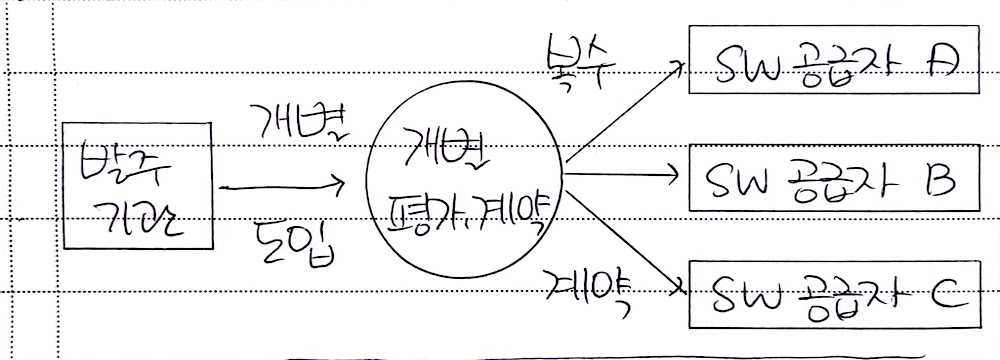 발주
기관
개별
도입
개별
평가, 계약
복수
계약
SW 공급자 A
SW 공급자 B
SW 공급자 C